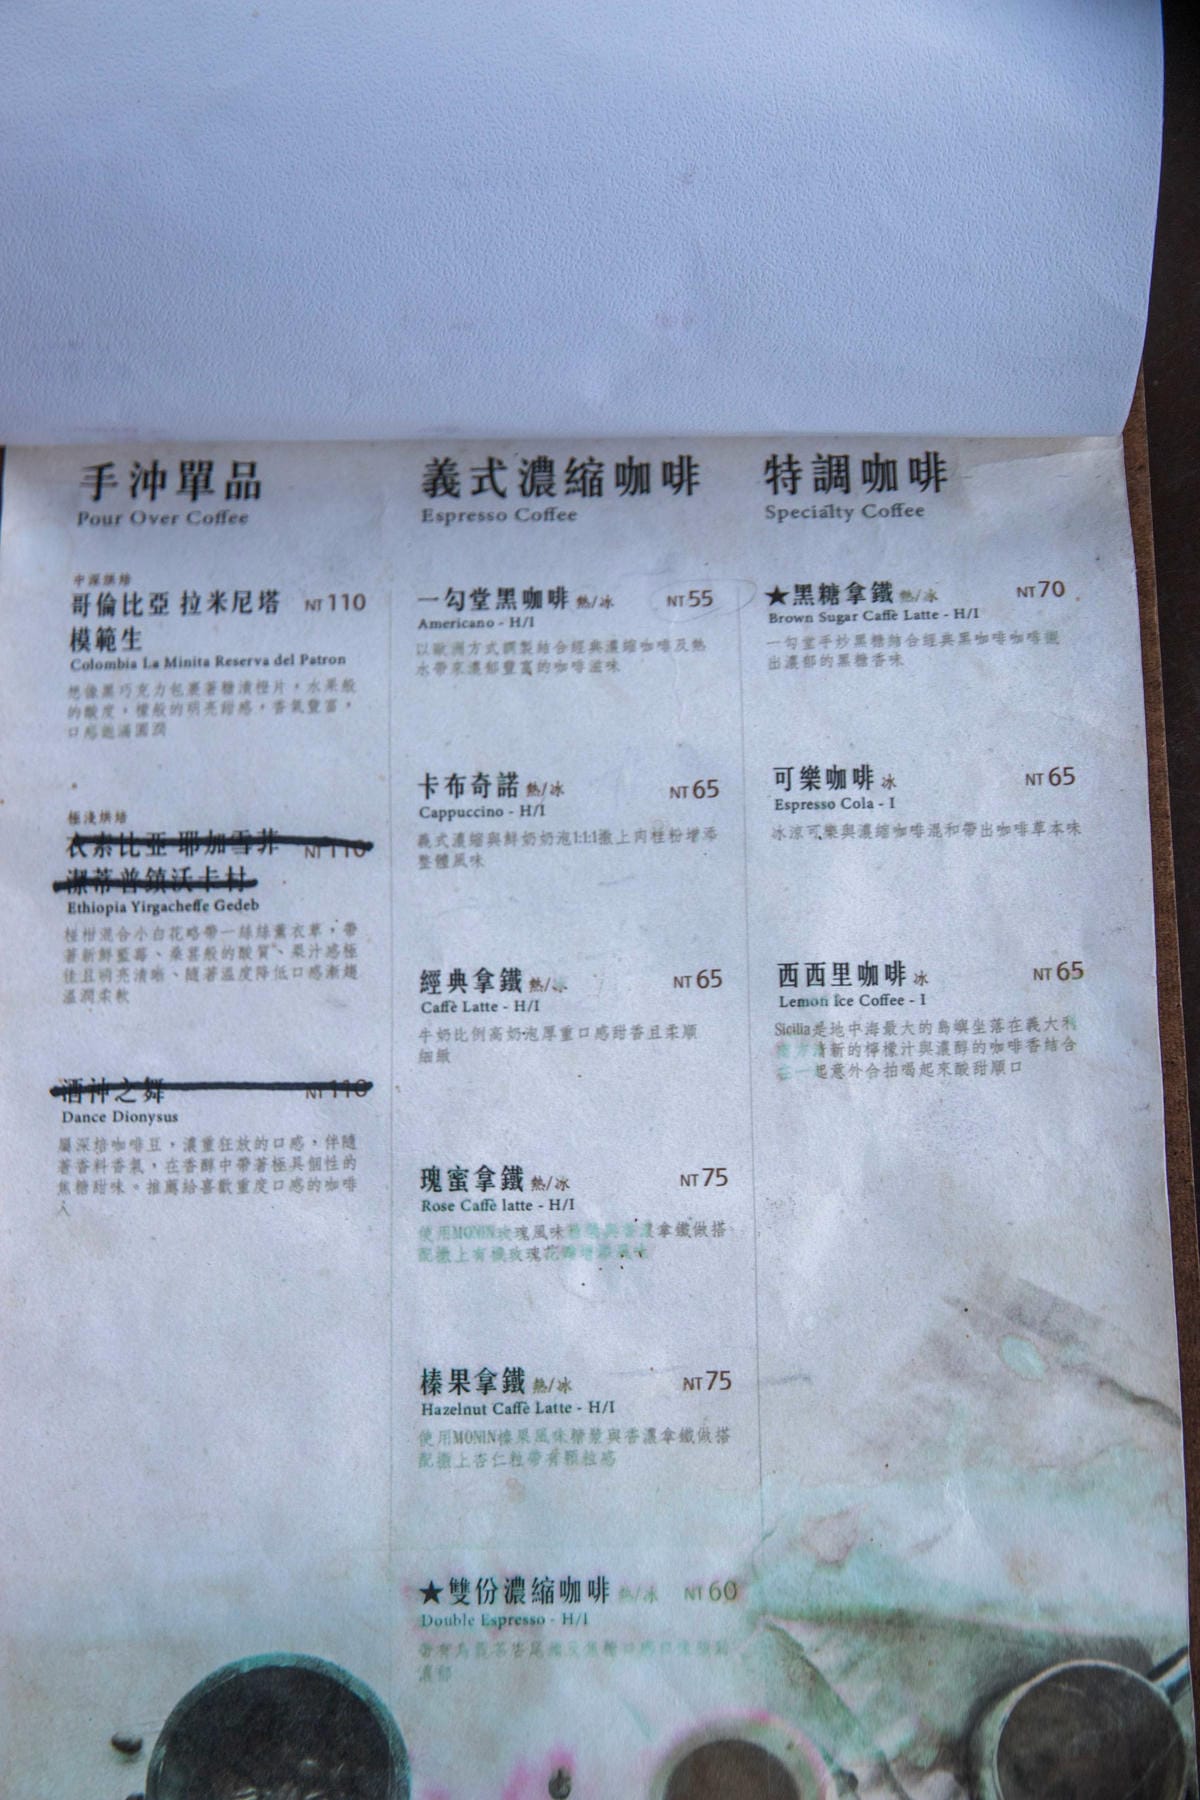 手沖單品
Pour Over Coffee
中深烘焙
哥倫比亞 拉米尼塔 NT110
模範生
Colombia La Minita Reserva del Patron
想像黑巧克力包裹著糖漬橙片，水果般
的酸度，檬般的明亮甜感，香氣豐富，
口感飽滿圓潤
極淺烘焙
衣索比亞 耶加雪菲 NT110
潔蒂普鎮沃卡村
Ethiopia Yirgacheffe Gedeb
柑混合小白花略帶一絲絲薰衣草，帶
著新鮮藍莓、桑葚般的酸質、果汁感極
佳且明亮清晰、隨著溫度降低口感漸趨
溫潤柔軟
酒神之舞 NT110
Dance Dionysus
屬深焙咖啡豆，濃重狂放的口感，伴隨
著香料香氣，在香醇中帶著極具個性的
焦糖甜味。推薦給喜歡重度口感的咖啡
人
義式濃縮咖啡
Espresso Coffee
一勾堂黑咖啡 熱/冰 NT55
Americano - H/I
以歐洲方式調製結合經典濃縮咖啡及熱
水帶來濃郁豐富的咖啡滋味
卡布奇諾 熱/冰 NT65
Cappuccino - H/I
義式濃縮與鮮奶奶泡1:1:1撒上肉桂粉增添
整體風味
經典拿鐵 熱/冰 NT65
Caffè Latte - H/I
牛奶比例高奶泡厚重口感甜香且柔順
細緻
瑰蜜拿鐵 熱/冰 NT75
Rose Caffè latte - H/I
使用MONIN玫瑰風味糖漿與香濃拿鐵做搭
配撒上有機玫瑰花瓣增添風味
榛果拿鐵 熱/冰 NT75
Hazelnut Caffè Latte - H/I
使用MONIN榛果風味糖漿與香濃拿鐵做搭
配撒上杏仁粒帶有顆粒感
★雙份濃縮咖啡 熱/冰 NT60
Double Espresso - H/I
帶有烏龍茶杏尾韻及焦糖口感口味
濃郁
特調咖啡
Specialty Coffee
★黑糖拿鐵 熱/冰 NT70
Brown Sugar Caffè Latte - H/I
一勾堂手炒黑糖結合經典黑咖啡咖啡襯
出濃郁的黑糖香味
可樂咖啡 冰 NT65
Espresso Cola - I
冰涼可樂與濃縮咖啡混和帶出咖啡草本味
西西里咖啡 冰 NT65
Lemon Ice Coffee - I
Sicilia是地中海最大的島嶼坐落在義大利
南方清新的檸檬汁與濃醇的咖啡香結合
在一起意外合拍喝起來酸甜順口